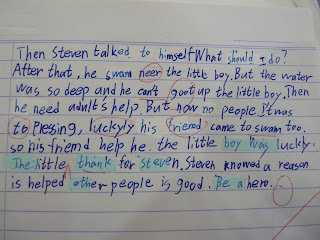 Then Steven talked to himself What should I do?
After that, he swam neer the little boy. But the water
was so deep and he can't got up the little boy. Then
he need adult's help But now no people it was
to Pressing, luckyly his friend came to swam too.
so his friend help he. the little boy was lucky.
The little thank for Steven. Steven knowed a reason
is helped other people is good. Be a hero.